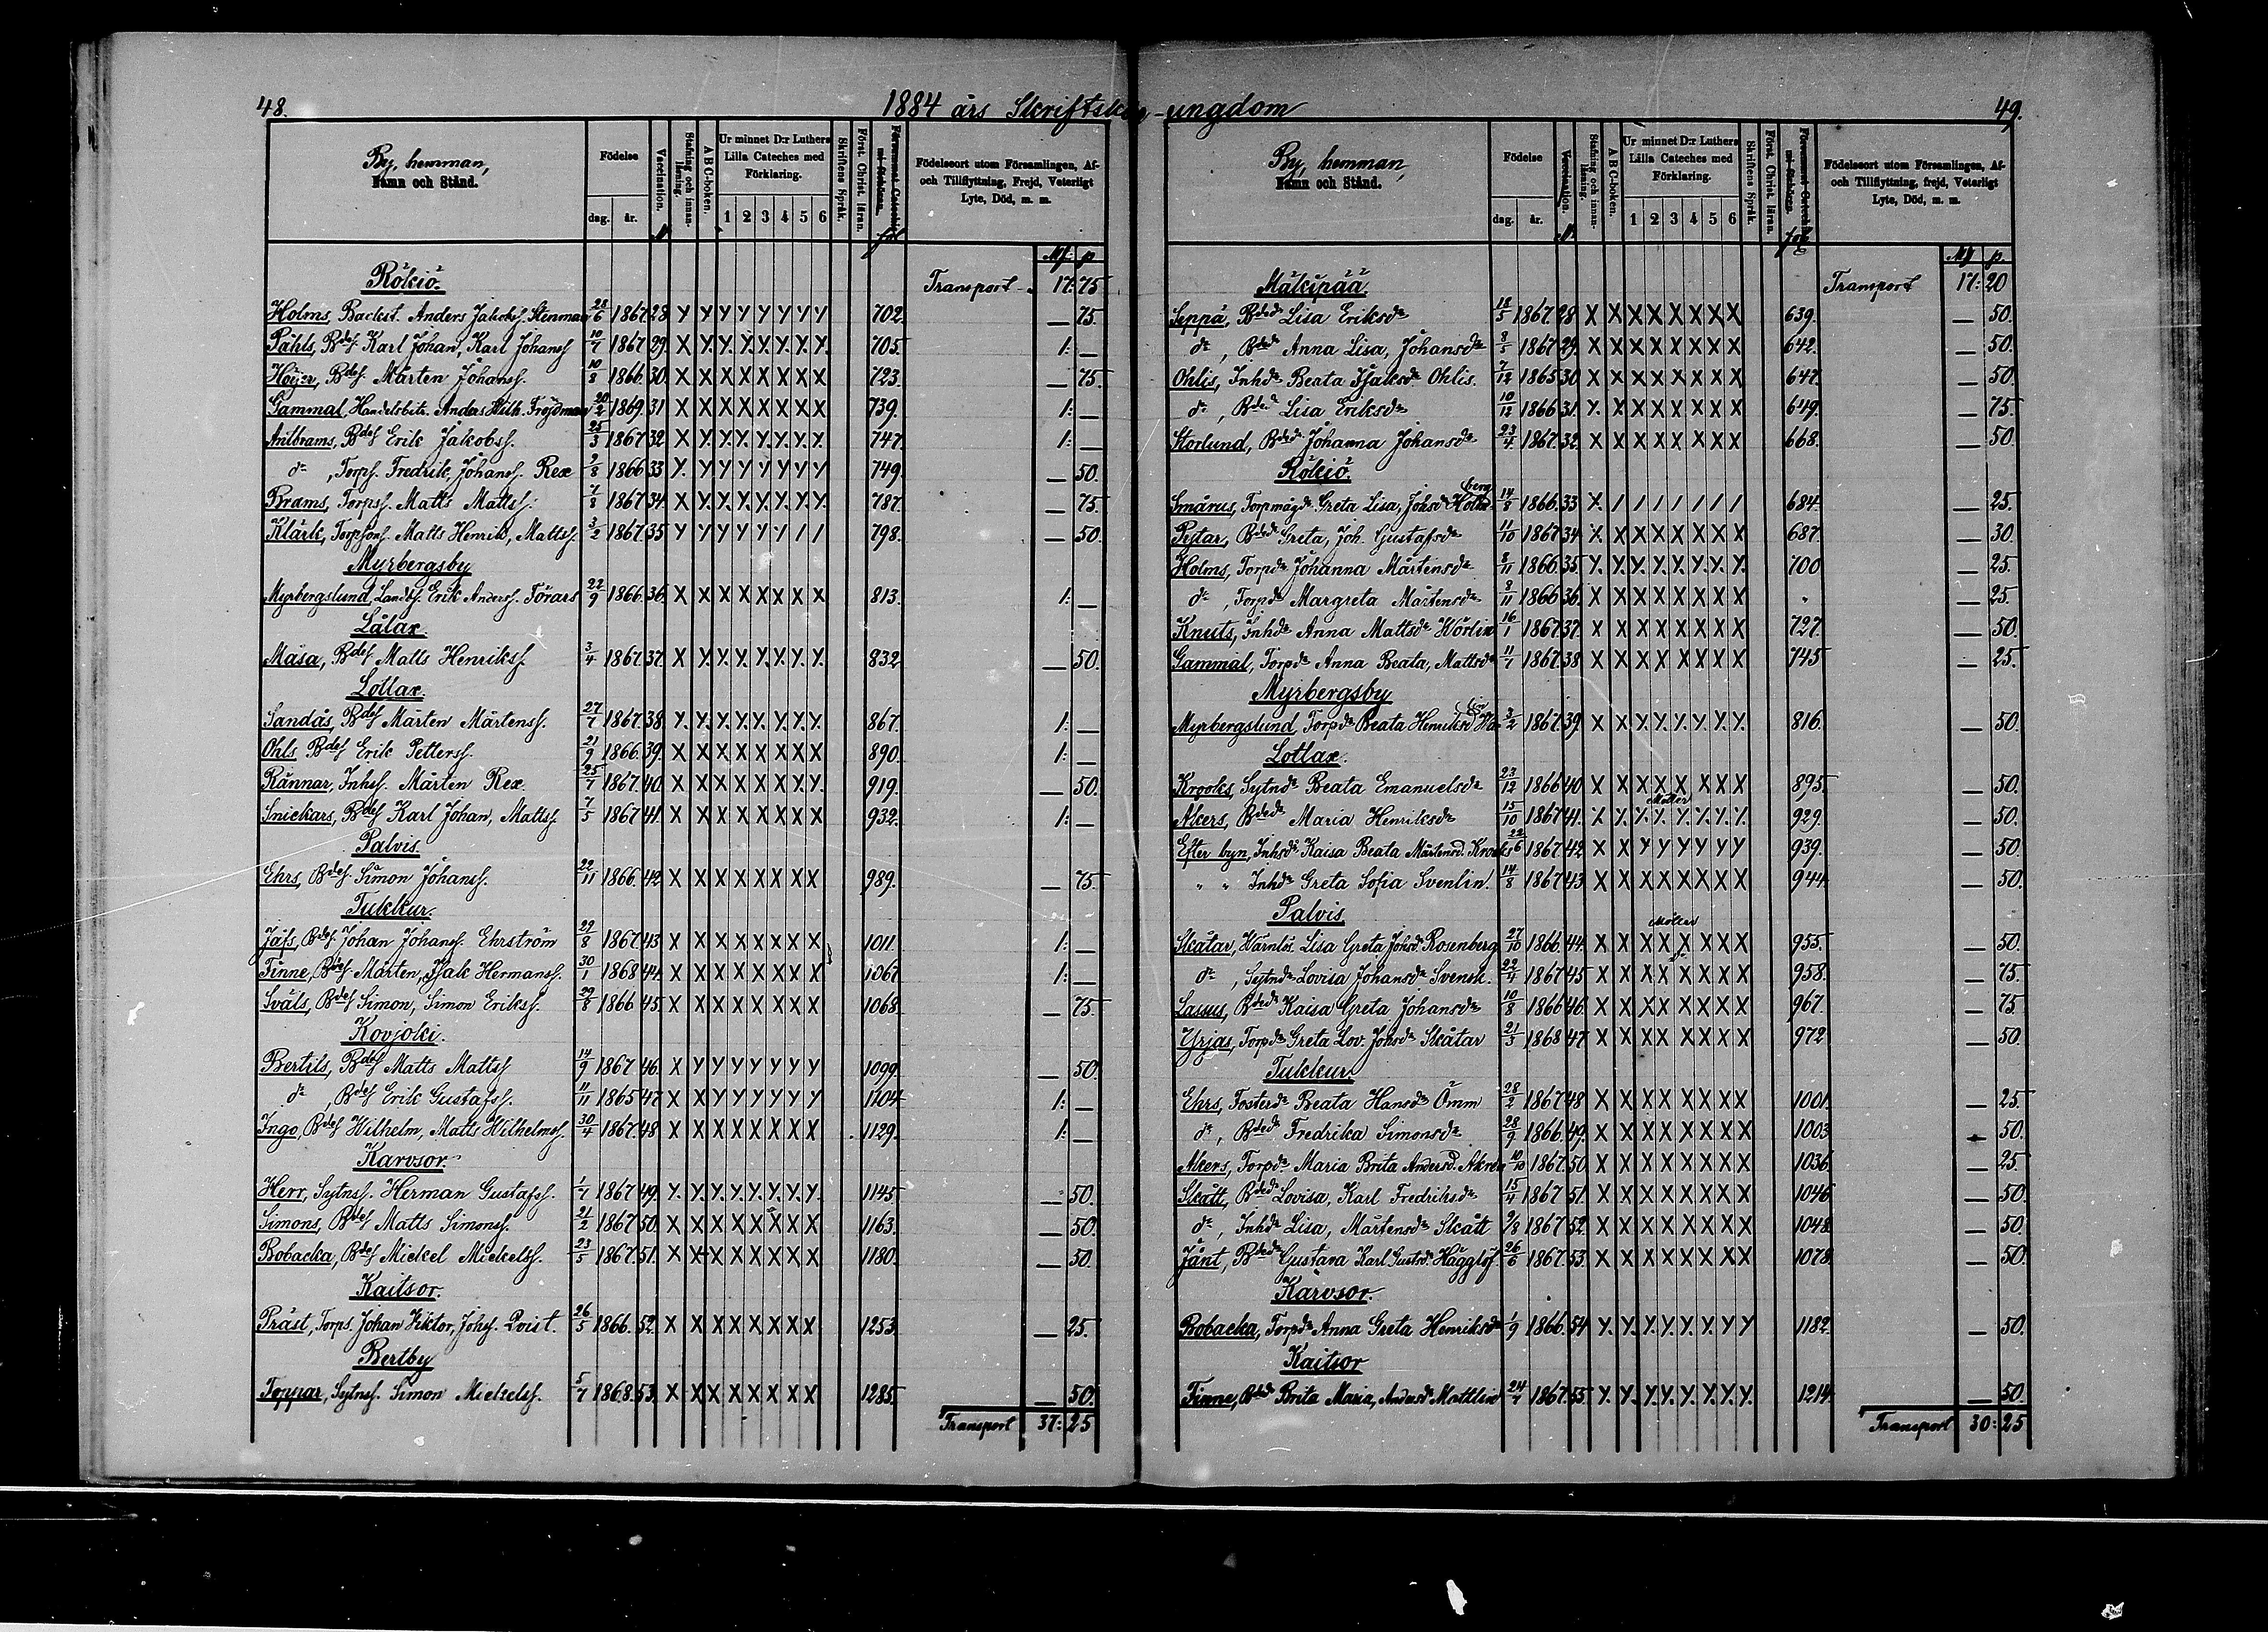 48.
1884 års Skriftskol-ungdom
By, hemman,
Namn och Stånd.
Födelse
dag. år.
Vaccination.
Stafning och innanläsning.
A B C-boken.
Ur minnet D:r Luthers
Lilla Cateches med
Förklaring.
1 2 3 4 5 6
Skriftens Språk.
Först. Christ. läran.
fol
Födelseort utom Församlingen, Af-
och Tillflyttning, Frejd, Veterligt
Lyte, Död, m. m.
Mf. p.
Rökiö. Transport 17: 75
Holms, Backst. Anders Jakobss. Stenman 28/6 1867 28 X X X X X X X X 702. — 75.
Påhls, Bdes. Karl Johan, Karl Johanss 10/7 1867 29. X X X X X X X X 705. 1: —
Höijer, Bdes. Mårten Johanss. 10/8 1866. 30. X X X X X X X X 723. — 75.
Gammal, Handelsbitr. Anders Wilh. Fröjdman 20/2 1869. 31 X X X X X X X X 739. 1: —
Antbrams, Bdes Erik Jakobss. 25/3 1867 32 X X X X X X X X 747. 1: —
do, Torps. Fredrik, Johanss. Rex 2/8 1866 33 X X X X X X X X 749. — 50.
Brams, Torps. Matts Mattss. 7/8 1867 34. X X X X X X X X 787. — 75.
Klärk, Torpsons. Matts Henrik, Mattss. 3/2 1867. 35 X X X X X X / / 798. — 50.
Myrbergsby
Myrbergslund Landb.s. Erik Anderss. Förars 22/9 1866. 36. X X X X X X X X 813. 1: —
Lålax.
Mäsa, Bdes. Matts Henrikss. 3/4 1867. 37. X X X X X X X X 832 — 50.
Lotlax.
Sandås, Bdes Mårten Mårtenss. 27/7 1867. 38. X X X X X X X X 867. 1: —
Ohls Bdes Erik Petterss. 21/9 1866. 39. X X X X X X X X 890. 1: —
Rännar, Inhss. Mårten Rex. 25/7 1867. 40. X X X X X X X X 919. — 50.
Snickars, Bdes Karl Johan, Mattss 7/5 1867 41. X X X X X X X X 932. 1: —
Palvis.
Ehrs, Bdes. Simon Johanss. 22/11 1866. 42 X X X X X X X X 989. — 75.
Tukkur.
Jåfs, Bdes. Johan Johanss. Ehrström 29/8 1867. 43 X X X X X X X X 1011. 1: —
Finne, Bdes. Mårten, Isak Hermanss. 30/1 1868 44. X X X X X X X X 1067 1: —
Sväls, Bdes Simon, Simon Erikss. 29/8 1866 45. X X X X X X X X 1068. — 75.
Kovjoki.
Bertils, Bdes Matts Mattss 14/9 1867 46. X X X X X X X X 1099. — 50.
do, Bdes Erik Gustafss. 11/11 1865 47 X X X X X X X X 1104. 1: —
Ingo, Bdes Wilhelm, Matts Wilhelmss. 30/4 1867. 48 X X X X X X X X 1129. 1: —
Karvsor.
Herr, Sytns. Herman Gustafss. 1/7 1867 49. X X X X X X X X 1145 — 50.
Simons, Bdes Matts Simonss. 21/2 1867 50. X X X X X X X X 1163. — 50.
Bobacka, Bdes Mickel Mickelss. 23/5 1867. 51. X X X X X X X X 1180. — 50.
Kaitsor.
Präst, Torps. Johan Viktor, Johss. Qvist. 26/5 1866. 52. X X X X X X X X 1253. — 25.
Bertby
Toppar, Sytns. Simon Mickelss. 5/7 1868. 53. X X X X X X X X 1285. — 50.
Transport 37: 25
49.
By, hemman,
Namn och Stånd.
Födelse
dag. år.
Vaccination.
Stafning och innanläsning.
A B C-boken.
Ur minnet D:r Luthers
Lilla Cateches med
Förklaring.
1 2 3 4 5 6
Skriftens Språk.
Först. Christ. läran.
fol
Födelseort utom Församlingen, Af-
och Tillflyttning, frejd, Veterligt
Lyte, Död, m. m.
Mf p.
Mäkipää. Transport 17: 20
Seppä, Bded Lisa Eriksdr 18/5 1867. 28 X X X X X X X X 639. — 50.
do, Bded Anna Lisa, Johansdr 8/5 1867 29. X X X X X X X X 642. — 50.
Ohlis, Inhdr Beata Isaksdr Ohlis. 7/12 1865 30 X X X X X X X X 647. — 50.
do, Bded Lisa Eriksdr 10/12 1866 31. X X X X X X X X 649. — 75.
Storlund, Bded Johanna Johansdr 23/4 1867. 32. X X X X X X X X 668. — 50.
Rökiö.
Smärus, Torpmågdr Greta Lisa, Johsdr Holmberg 14/8 1866. 33 X / / / / / / / 684. — 25.
Pytar, Bded Greta, Joh. Gustafsdr 11/10 1867 34 X X X X X X X X 687. — 30.
Holms, Torpdr Johanna Mårtensdr 8/11 1866 35 X X X X X X X X 700 — 25.
do, Torpdr Margreta Mårtensdr 8/11 1866 36. X X X X X X X X " — 25.
Knuts, Inhdr Anna Mattsdr Wörlin 16/1 1867 37. X X X X X X X X 727. — 50.
Gammal, Torpdr Anna Beata, Mattsdr 11/7 1867. 38 X X X X X X X X 745 — 25.
Myrbergsby
Myrbergslund Torpdr Beata Henriksdr 3/2 1867 39. X X X X X X X X 816. — 50.
Lotlax.
Krooks, Sytndr Beata Emanuelsdr 23/12 1866 40 X X X X X X X X 895. — 50.
Akers, Bded Maria Henriksdr 15/10 1867 41. X X X X X X X X 929. — 50.
Efter byn, Inhsdr Kaisa Beata Mårtensd. Krooks 22/6 1867 42 X X X X X X X X 939. — 50.
" " Inhdr Greta Sofia Svenlin. 14/8 1867 43 X X X X X X X X 944. — 50.
Palvis
Skåtar, Värnlös. Lisa Greta Johsdr Rosenberg 27/10 1866 44. X X X X X X X X 955. — 50.
do, Sytndr Lovisa Johansdr Svensk. 22/4 1867 45 X X X X X X X X 958. — 75.
Lassus, Bded Kaisa Greta Johansdr 10/8 1866 46. X X X X X X X X 967. — 75.
Yrjas, Torpdr Greta Lov. Johsdr Skåtar 21/3 1868 47 X X X X X X X X 972 — 50.
Tukkur.
Ehrs, Fosterdr Beata Hansdr Ömm 28/2 1867 48 X X X X X X X X 1001. — 25.
do, Bded Fredrika Simonsdr 28/9 1866. 49. X X X X X X X X 1003 — 50.
Akers, Torpdr Maria Brita Andersd. 10/10 1867. 50. X X X X X X X X 1036 — 25.
Skått, Bded Lovisa, Karl Fredriksdr 15/4 1867 51. X X X X X X X X 1046 — 50.
do, Inhdr Lisa, Mårtensdr Skått 9/8 1867 52. X X X X X X X X 1048. — 50.
Jånt, Bded Gustava Karl Gustsdr Hägglöf 26/6 1867. 53. X X X X X X X X 1078. — 50.
Kärvsor.
Bobacka, Torpdr Anna Greta Henriksdr 1/9 1866. 54 X X X X X X X X 1182 — 50.
Kaitsor
Finne, Bded Brita Maria, Andersdr Mattlin 24/7 1867. 55. X X X X X X X X 1214. — 50.
Transport 30: 25